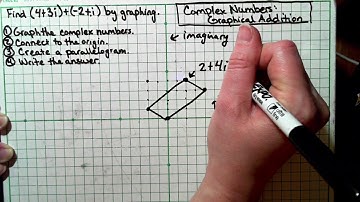 Find (4+3i)+(-2+i) by graphing.
Complex Numbers:
Graphical Addition
① Graph the complex numbers.
② Connect to the origin.
③ Create a parallelogram.
④ Write the answer.
← imaginary
2+4i